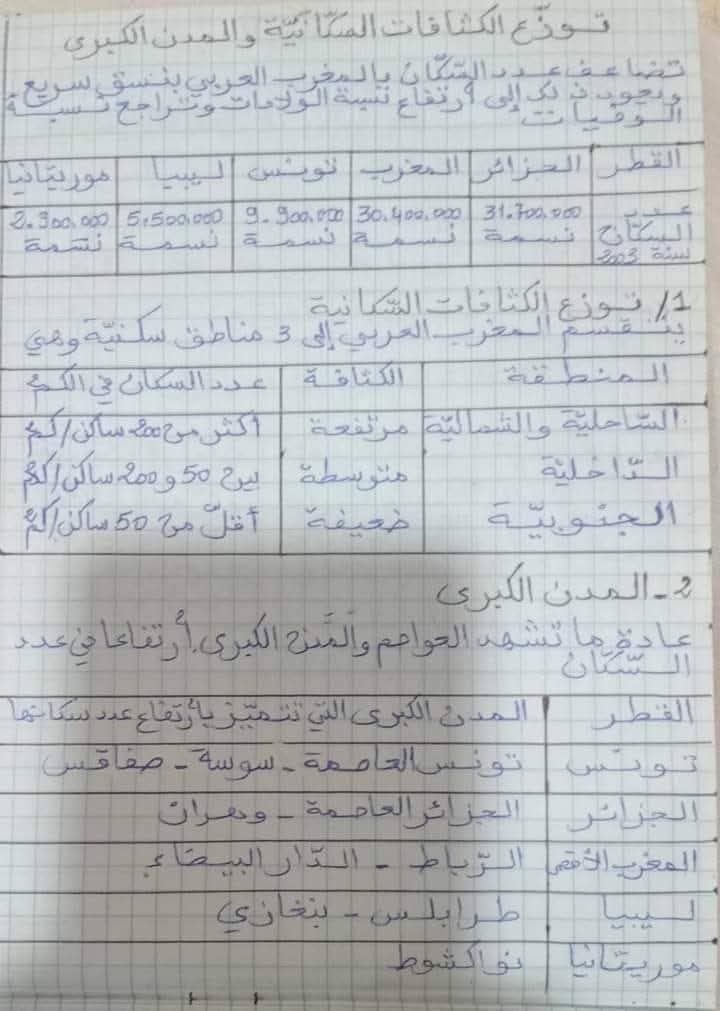 توزّع الكثافات السكّانيّة والمدن الكبرى
تضاعف عدد السكّان بالمغرب العربي بنسق سريع
ويعود ذلك إلى أرتفاع نسبة الولادات وتراجع نسبة
الوفيات
القطر الجزائر المغرب تونس ليبيا موريتانيا
عدد السكان سنة 2003 31.700.000 نسمة 30.400.000 نسمة 9.900.000 نسمة 5.500.000 نسمة 2.900.000 نسمة
1/ توزع الكثافات السّكانية
ينقسم المغرب العربي إلى 3 مناطق سكنيّة وهي
المنطقة الكثافة عدد السكان في الكم²
السّاحليّة والشماليّة مرتفعة أكثر من 200 ساكن/كم²
الدّاخليّة متوسطة بين 50 و 200 ساكن/كم²
الجنوبيّة ضعيفة أقلّ من 50 ساكن/كم²
2 - المدن الكبرى
عادة ما تشهد العواصم والمُدن الكبرى أرتفاعا في عدد
السّكّان
القطر المدن الكبرى التي تتميّز بأرتفاع عدد سكانها
تونس تونس العاصمة - سوسة - صفاقس
الجزائر الجزائر العاصمة - وهران
المغرب الأقصى الرّباط - الدّار البيضاء
ليبيا طرابلس - بنغازي
موريتانيا نواكشوط